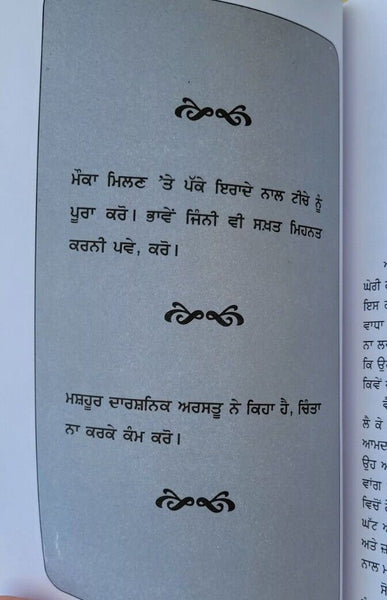 ਮੌਕਾ ਮਿਲਣ 'ਤੇ ਪੱਕੇ ਇਰਾਦੇ ਨਾਲ ਟੀਚੇ ਨੂੰ
ਪੂਰਾ ਕਰੋ। ਭਾਵੇਂ ਜਿੰਨੀ ਵੀ ਸਖ਼ਤ ਮਿਹਨਤ
ਕਰਨੀ ਪਵੇ, ਕਰੋ।
ਮਸ਼ਹੂਰ ਦਾਰਸ਼ਨਿਕ ਅਰਸਤੂ ਨੇ ਕਿਹਾ ਹੈ, ਚਿੰਤਾ
ਨਾ ਕਰਕੇ ਕੰਮ ਕਰੋ।
ਘੇਰੀ
ਇਸ
ਵਾਧਾ
ਨਾ
ਕਿ
ਕਿਵੇਂ
ਲੈ ਕੇ
ਆਮਦ
ਉਹ ਅ
ਵਾਂਗ
ਵਿਚੋਂ
ਘੱਟ ਅ
ਅਤੇ ਜ਼
ਨਾਲ ਮ